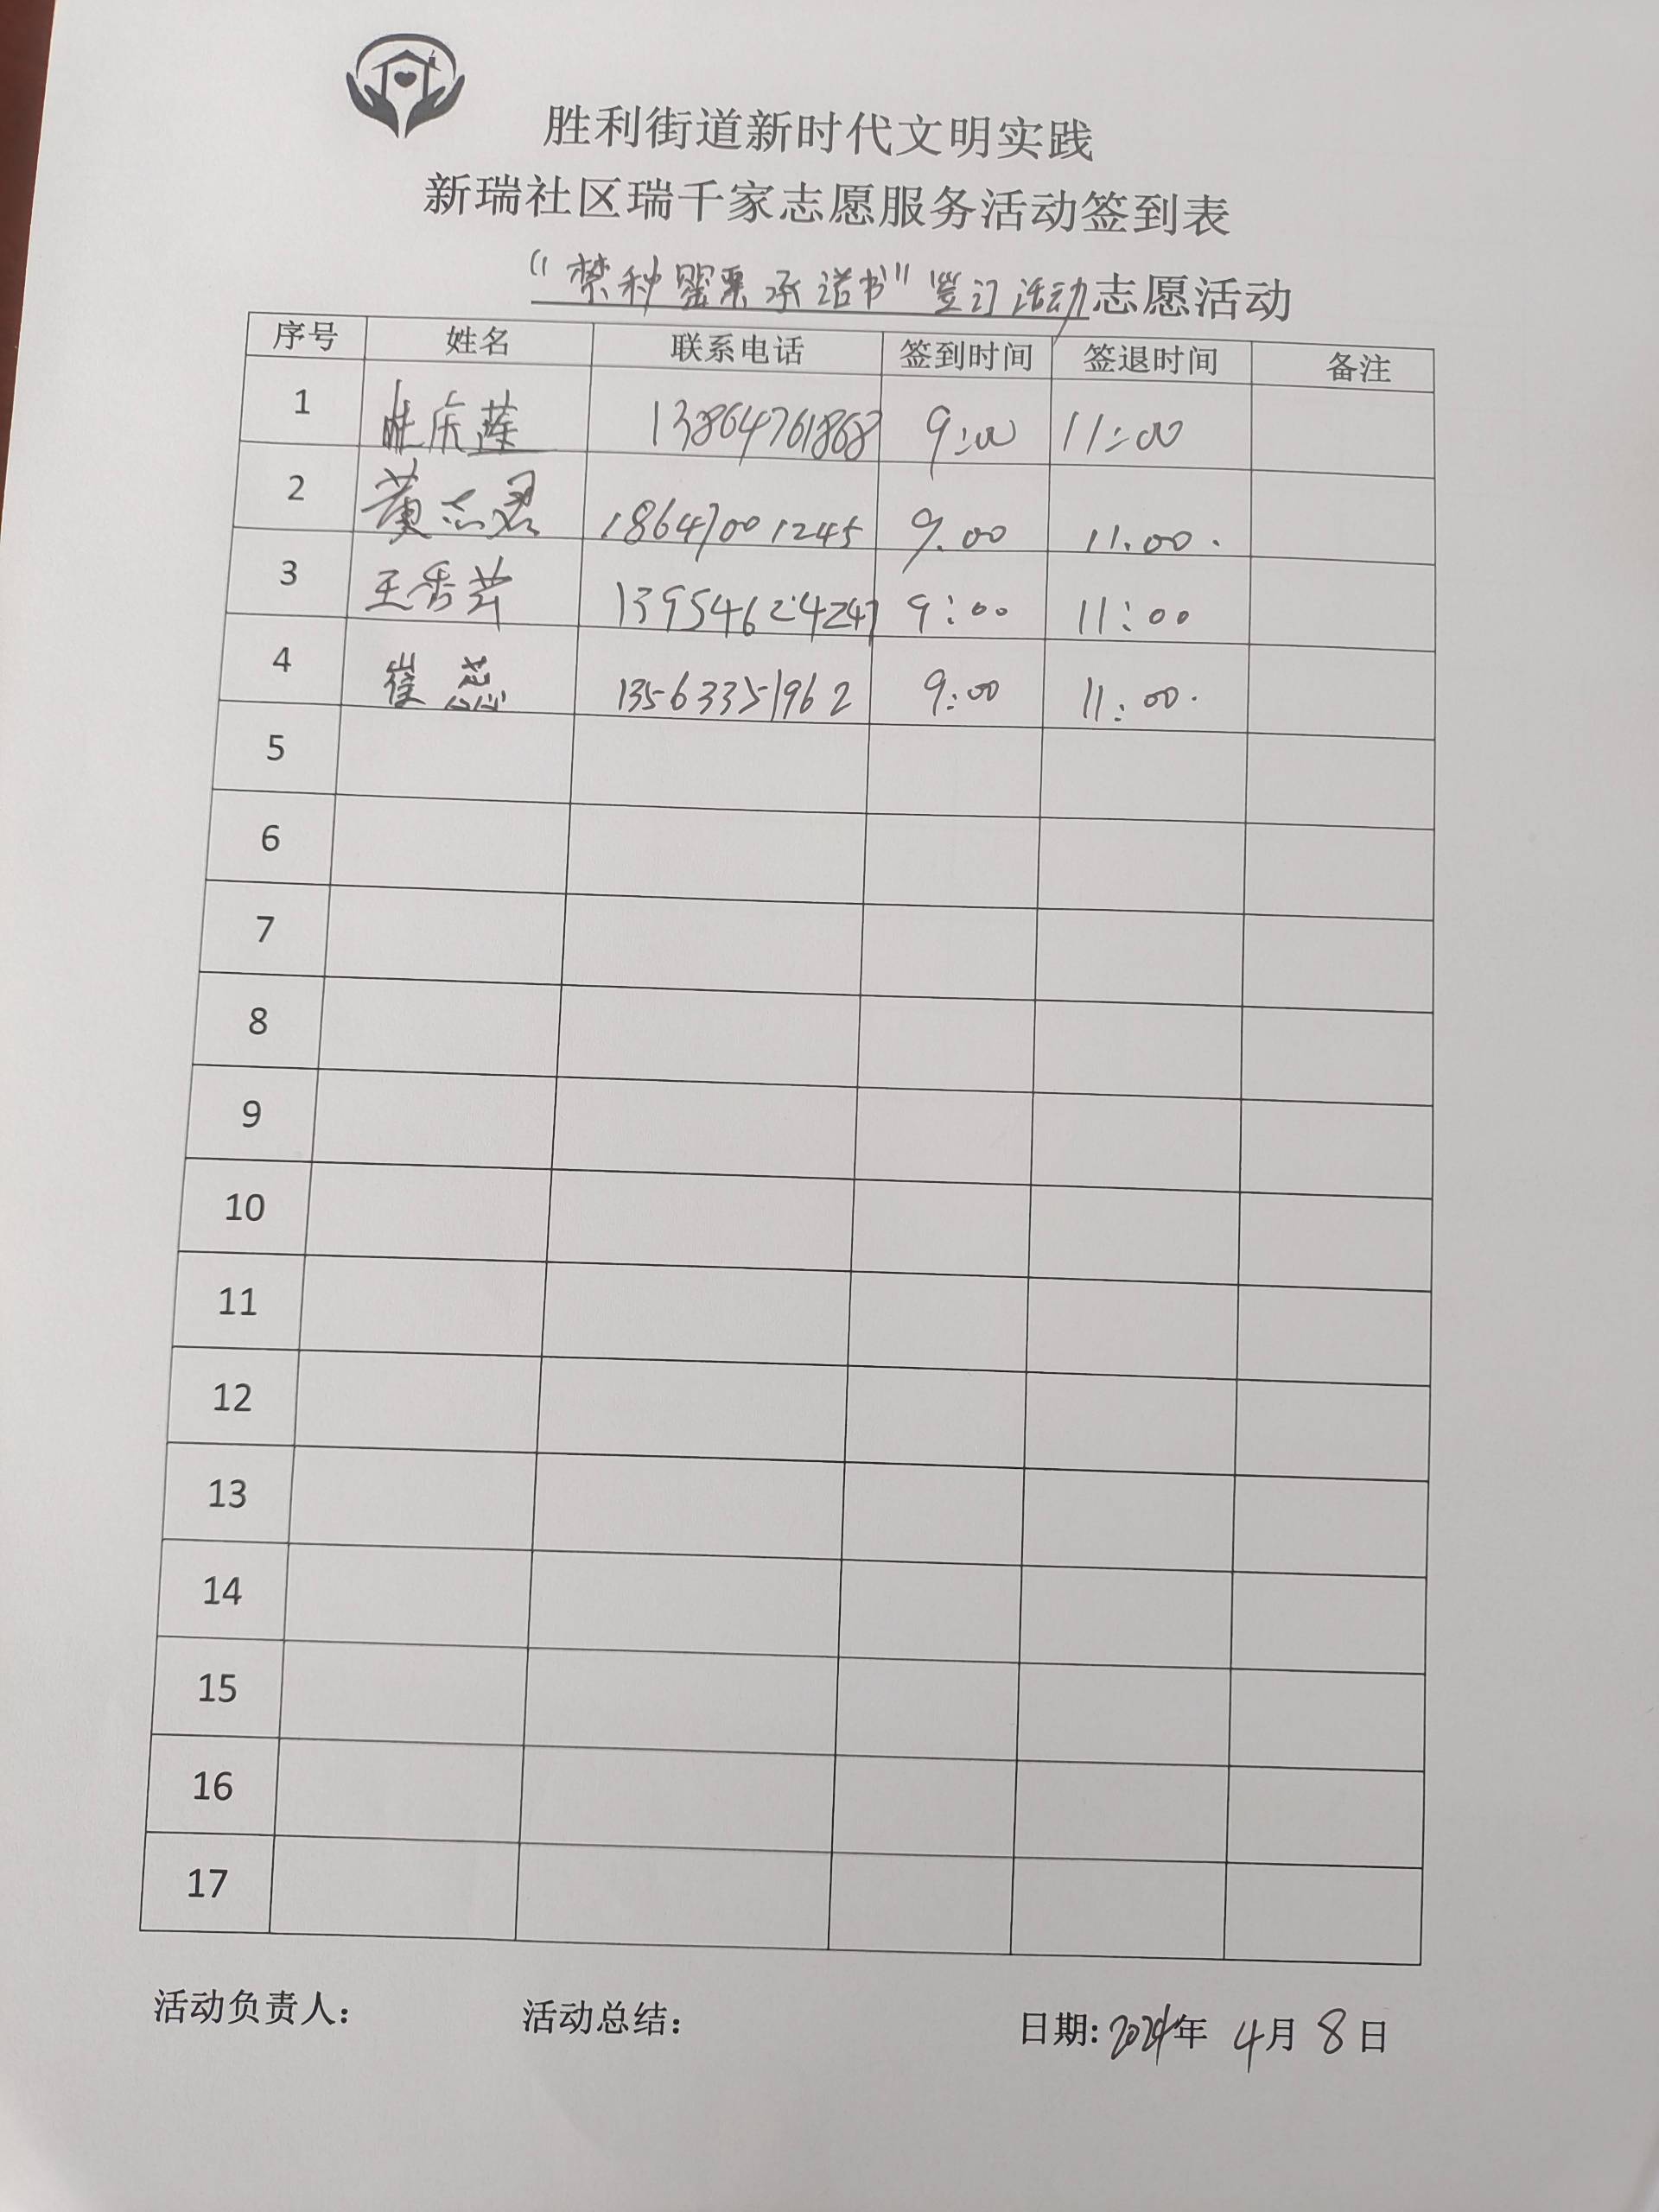 胜利街道新时代文明实践
新瑞社区瑞千家志愿服务活动签到表
“禁种罂粟承诺书”签订活动志愿活动
序号 姓名 联系电话 签到时间 签退时间 备注
1 庆莲 13864761868 9:00 11:00
2 黄志君 18647001245 9.00 11.00.
3 王秀芸 13954624247 9:00 11:00
4 崔蕊 13563351962 9:00 11:00.
5
6
7
8
9
10
11
12
13
14
15
16
17
活动负责人: 活动总结: 日期:2024年 4月 8日